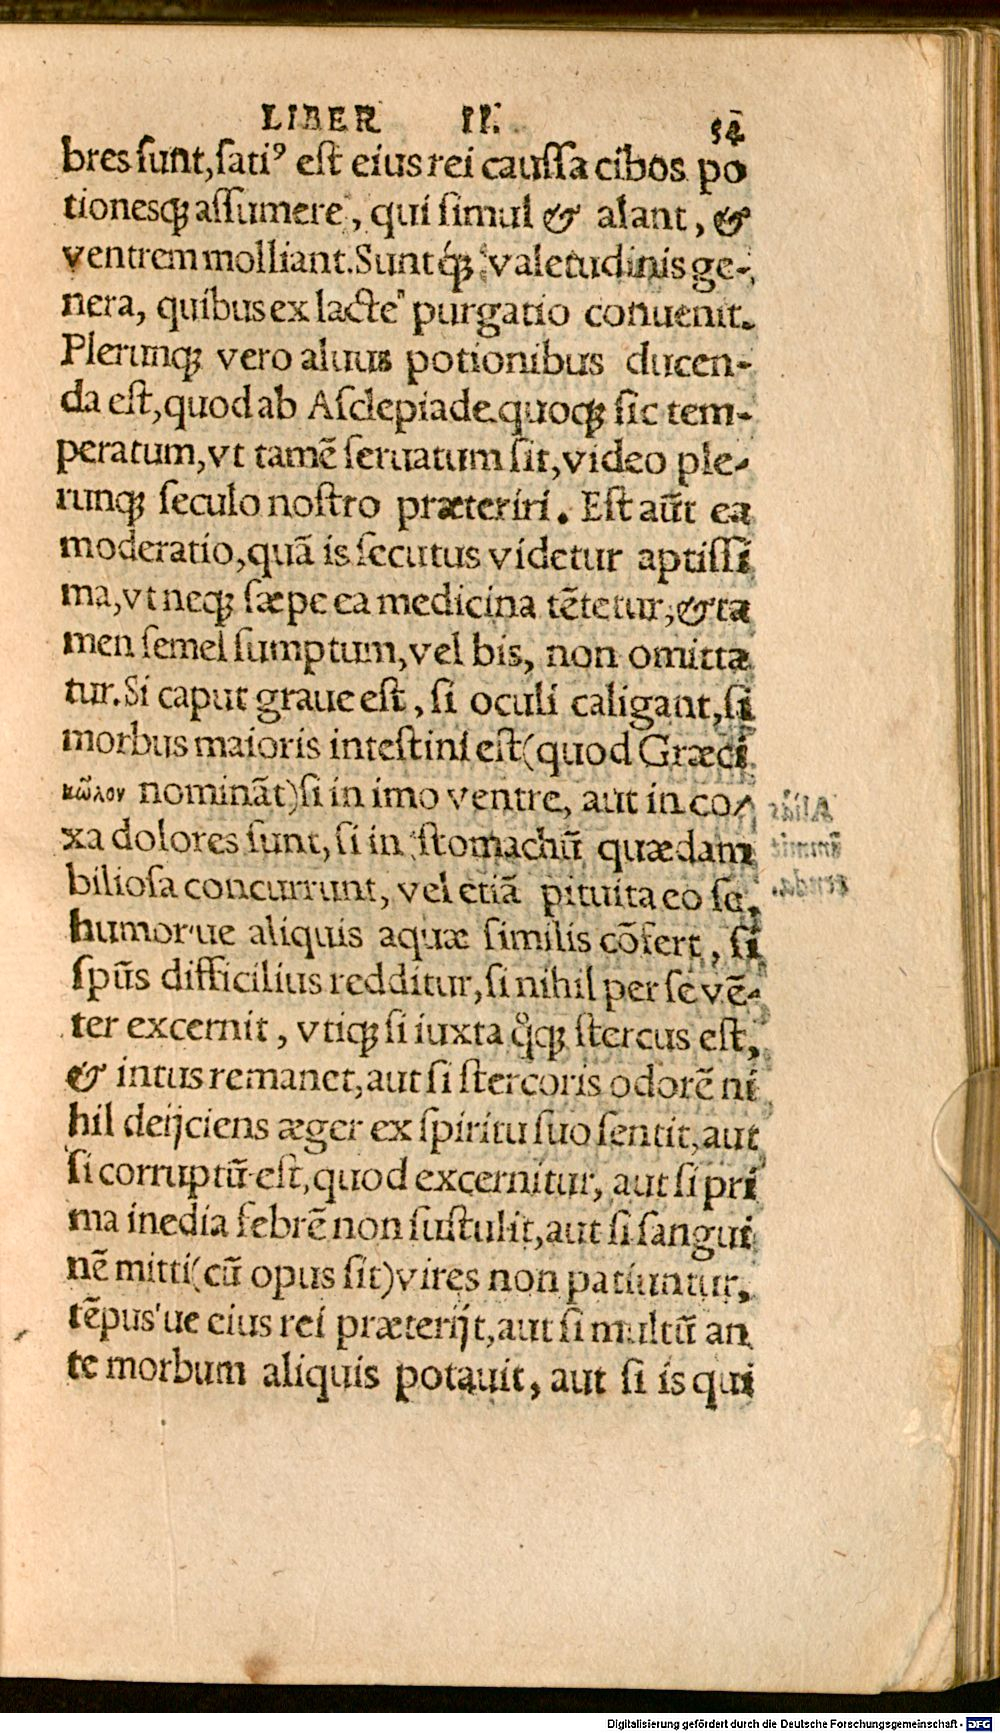 LIBER II. 54
bres sunt, satiꝰ est eius rei caussa cibos po
tionesqꝫ assumere, qui simul & alant, &
ventrem molliant. Sunt qꝫ valetudinis ge-
nera, quibus ex lacte purgatio conuenit.
Plerunqꝫ vero aluus potionibus ducen-
da est, quod ab Asclepiade quoqꝫ sic tem-
peratum, vt tamē seruatum sit, video ple-
runqꝫ seculo nostro præteriri. Est aūt ea
moderatio, quā is secutus videtur aptissi
ma, vt neqꝫ sæpe ea medicina tētetur, & ta
men semel sumptum, vel bis, non omitta
tur. Si caput graue est, si oculi caligant, si
morbus maioris intestini est (quod Græci
κῶλον nomināt) si in imo ventre, aut in co-
xa dolores sunt, si in stomachū quædam
biliosa concurrunt, vel etiā pituita eo se,
humor'ue aliquis aquæ similis cōfert, si
spūs difficilius redditur, si nihil per se vē-
ter excernit, vtiqꝫ si iuxta qͦqꝫ stercus est,
& intus remanet, aut si stercoris odorē ni
hil deijciens æger ex spiritu suo sentit, aut
si corruptū est, quod excernitur, aut si pri
ma inedia febrē non sustulit, aut si sangui
nē mitti (cū opus sit) vires non patiuntur,
tēpus'ue eius rei præterijt, aut si multū an
te morbum aliquis potauit, aut si is qui
Digitalisierung gefördert durch die Deutsche Forschungsgemeinschaft - DFG